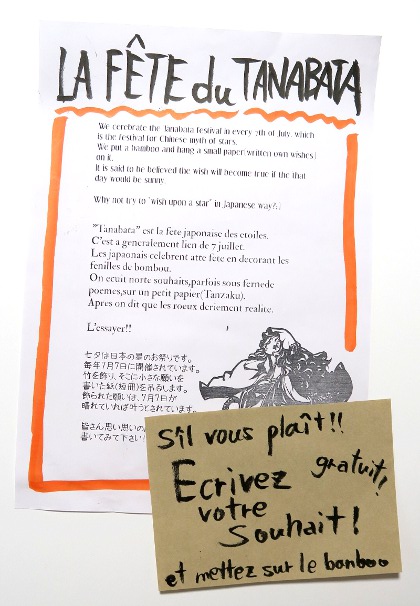 LA FÊTE du TANABATA
We cerebrate the Tanabata festival in every 7th of July, which
is the festival for Chinese myth of stars.
We put a bamboo and hang a small paper(written own wishes)
on it.
It is said to be believed the wish will become true if the that
day would be sunny.
Why not try to "wish upon a star" in Japanese way?:)
"Tanabata" est la fete japonaise des etoiles.
C'est a generalement lien de 7 juillet.
Les japaonais celebrent atre fete en decorant les
fenilles de bombou.
On ecuit norte souhaits,parfois sous fernede
poemes,sur un petit papier(Tanzaku).
Apres on dit que les roeux deriement realite.
L'essayer!!
七夕は日本の星のお祭りです。
毎年7月7日に開催されています。
竹を飾り、そこに小さな願いを
書いた紙(短冊)を吊るします。
飾られた願いは、7月7日が
晴れていれば叶うとされています。
皆さん思い思いの
書いてみて下さい!
S'il vous plaît!!
Ecrivez gratuit!
votre
Souhait!
et mettez sur le bonboo